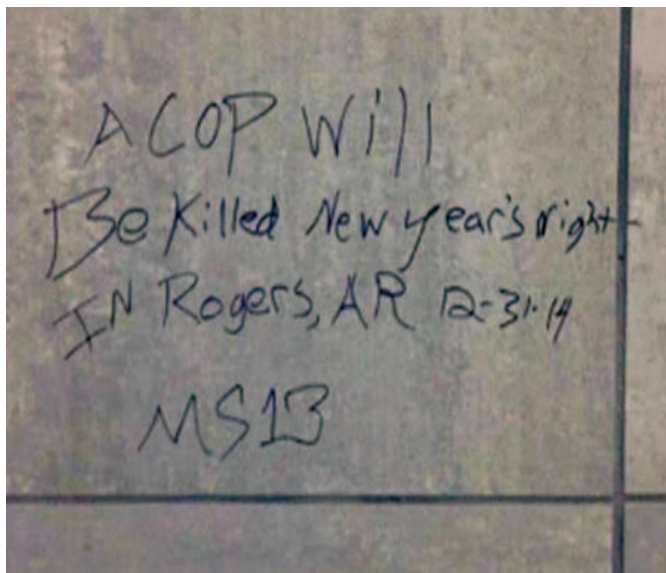 A COP Will
Be Killed New year's night
IN Rogers, AR 12-31-14
MS13